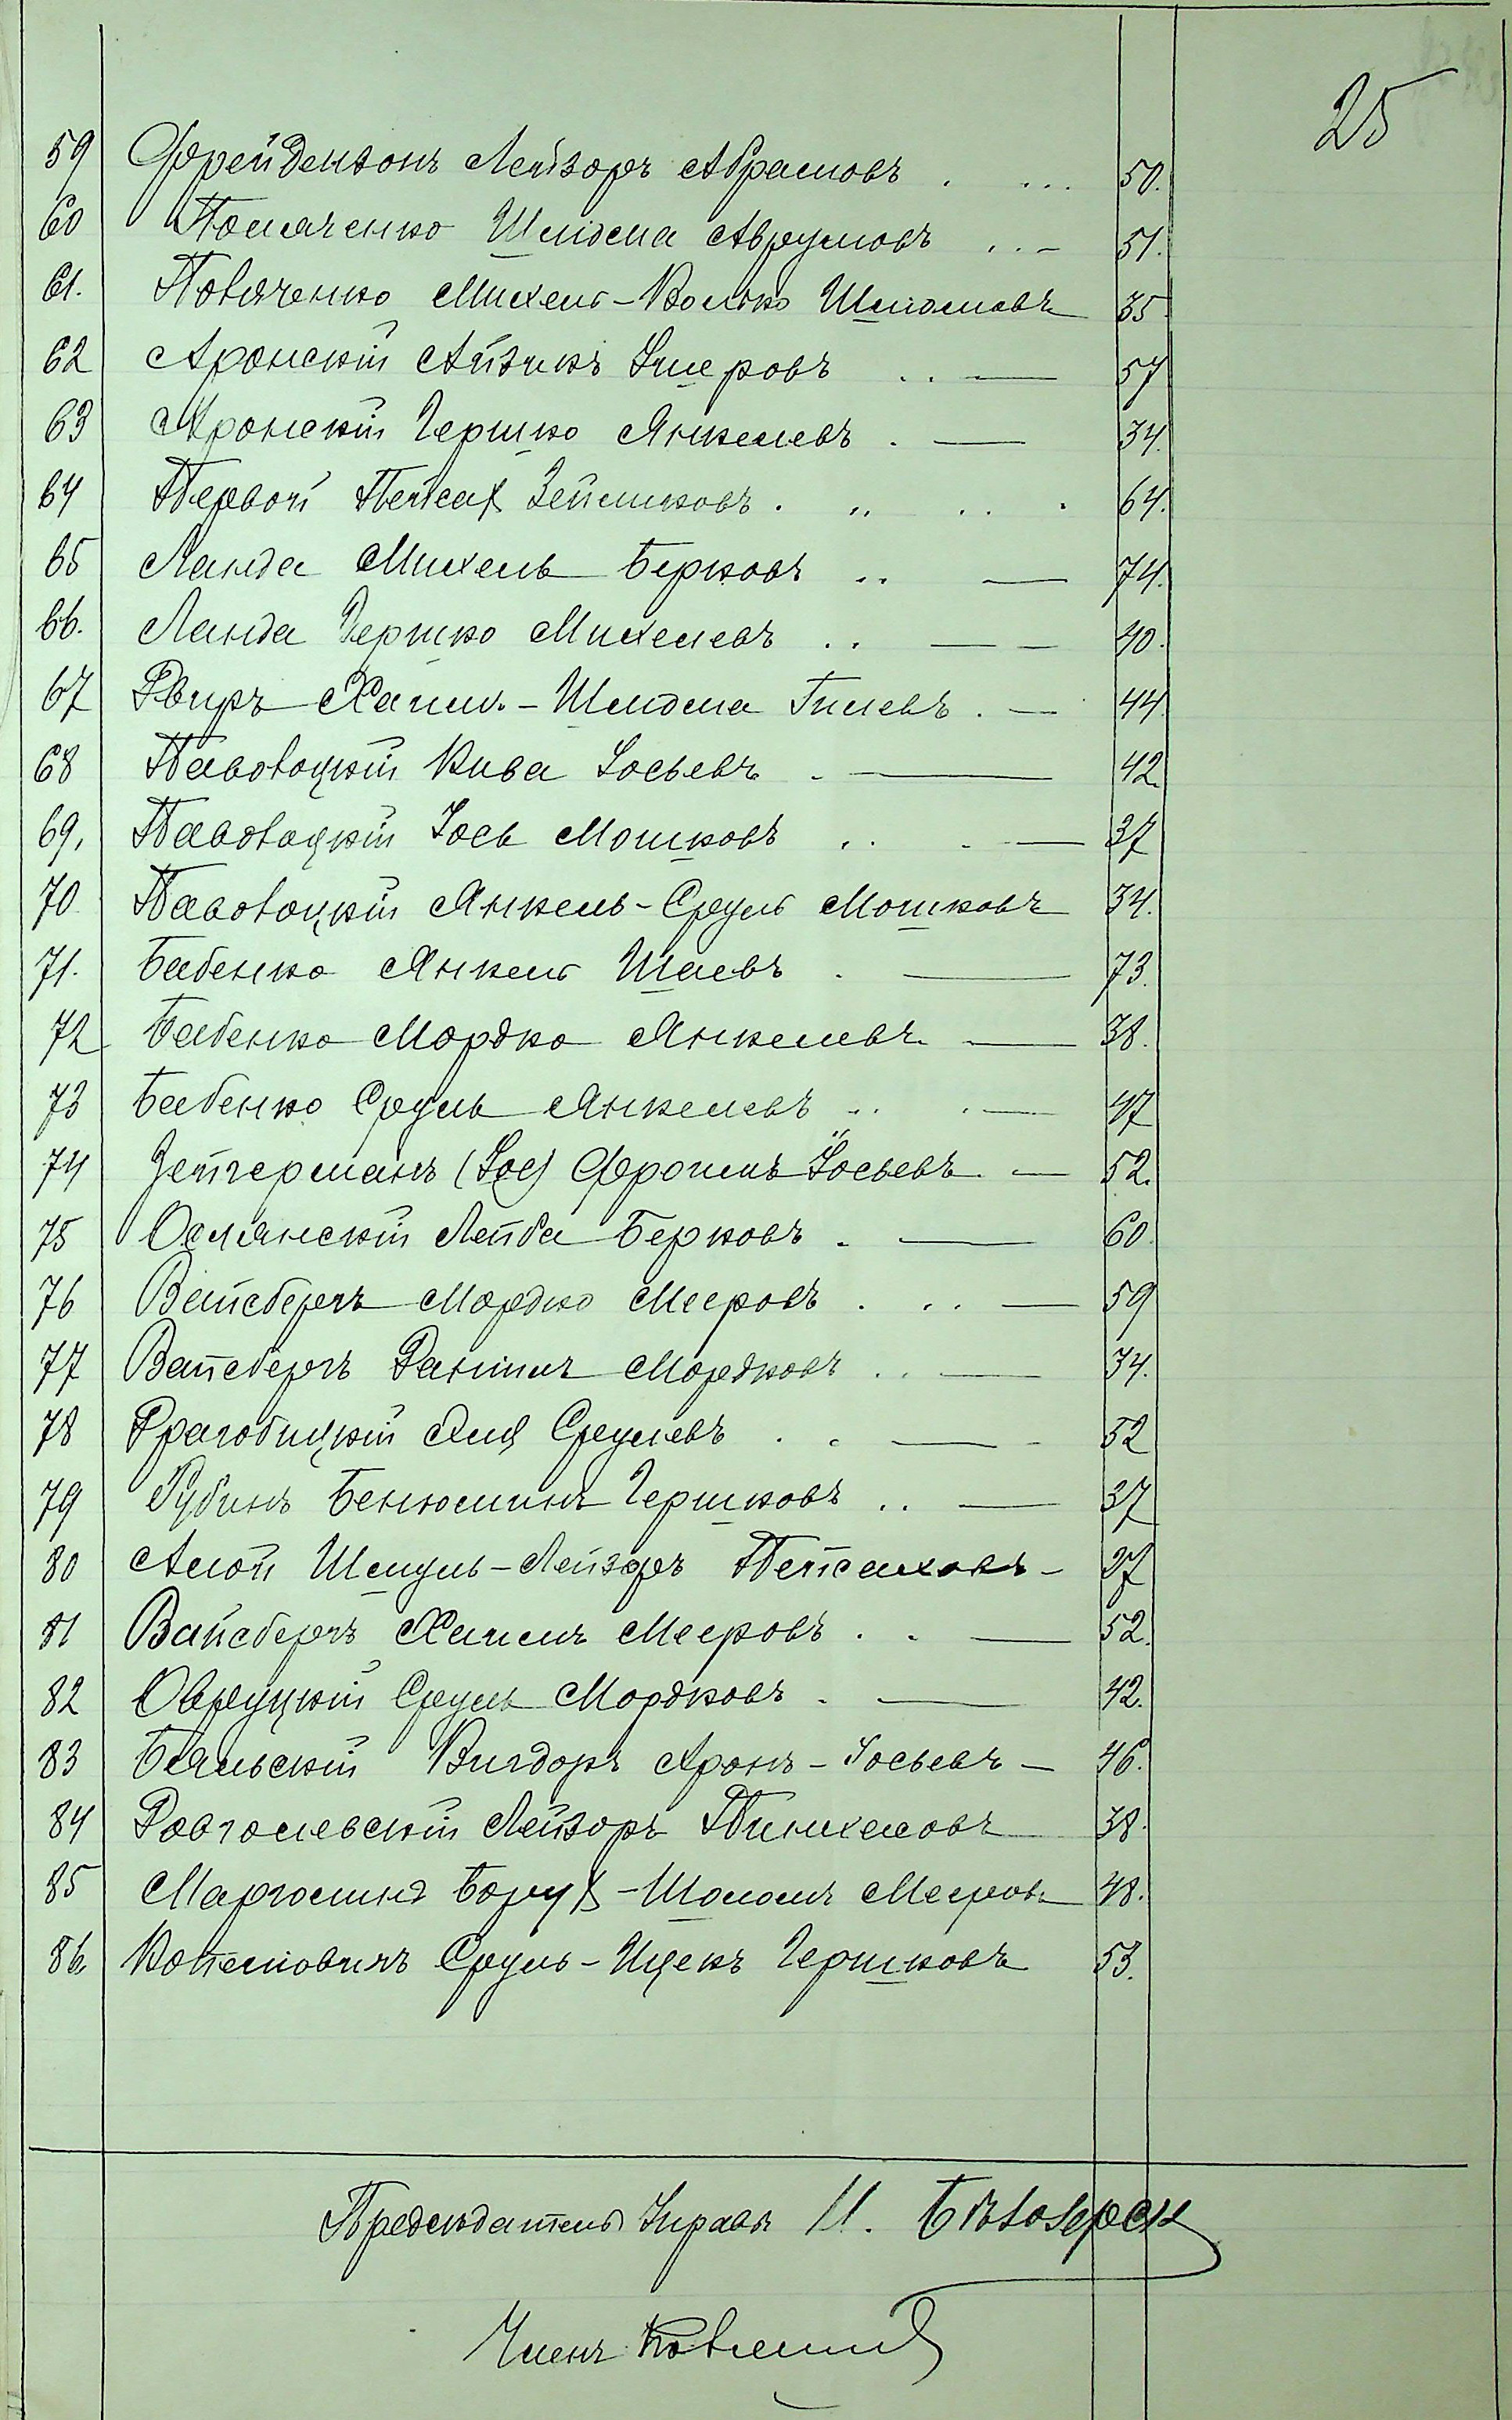 25
59 Фрейдензонъ Лейзоръ Абрамовъ . ... 50.
60 Шлиома Аврумовъ . . - 51.
61. Повяченко Михель-Волько Шлиомовъ 35
62 Аронскій Айзикъ . . — 57
63 Аронскій Гершко Янкелевъ . — 34.
64 Первой Пейсах Зейликовъ . „ . . . 64.
65 Ланда Михель Берковъ .. — 74.
66. Ланда Гершко Михелевъ . . — 40.
67 Двиръ Хаим.-Шлиома Гилевъ . — 44
68 Паволоцкій Кива Іосьевъ . — 42
69. Паволоцкій Іось Мошковъ . . . — 37
70 Паволоцкій Янкель-Сруль Мошковъ 34.
71. Бабенко Янкель Шаевъ . — 73.
72 Бабенко Мордко Янкелевъ — 38.
73 Бабенко Сруль Янкелевъ .. . — 47
74 Цейтерманъ Фроимъ Іосьевъ — 52.
75 Ослянскій Лейба Берковъ . — 60.
76 Вайсбергъ Мордко Мееровъ . . . — 59
77 Вайсбергъ Даніилъ Мордковъ . . — 34.
78 Драгобицкій Срулевъ . . — 52
79 Рубинъ Бенюминъ Гершковъ .. — 37
80 Шмуль-Лейзоръ Пейсаховъ - 27
81 Вайсбергъ Хаимъ Мееровъ . . — 52.
82 Овруцкій Сруль Мордковъ . — 42.
83 Бяльскій Вигдоръ Аронъ-Іосьевъ — 46.
84 Довголевскій Лейзоръ Пинхасовъ 38.
85 Марголинъ Борух-Шоломъ Мееровъ 48.
86. Сруль-Ицекъ Гершковъ 53.
Предсѣдатель Управы И. Бѣлозерск
Членъ